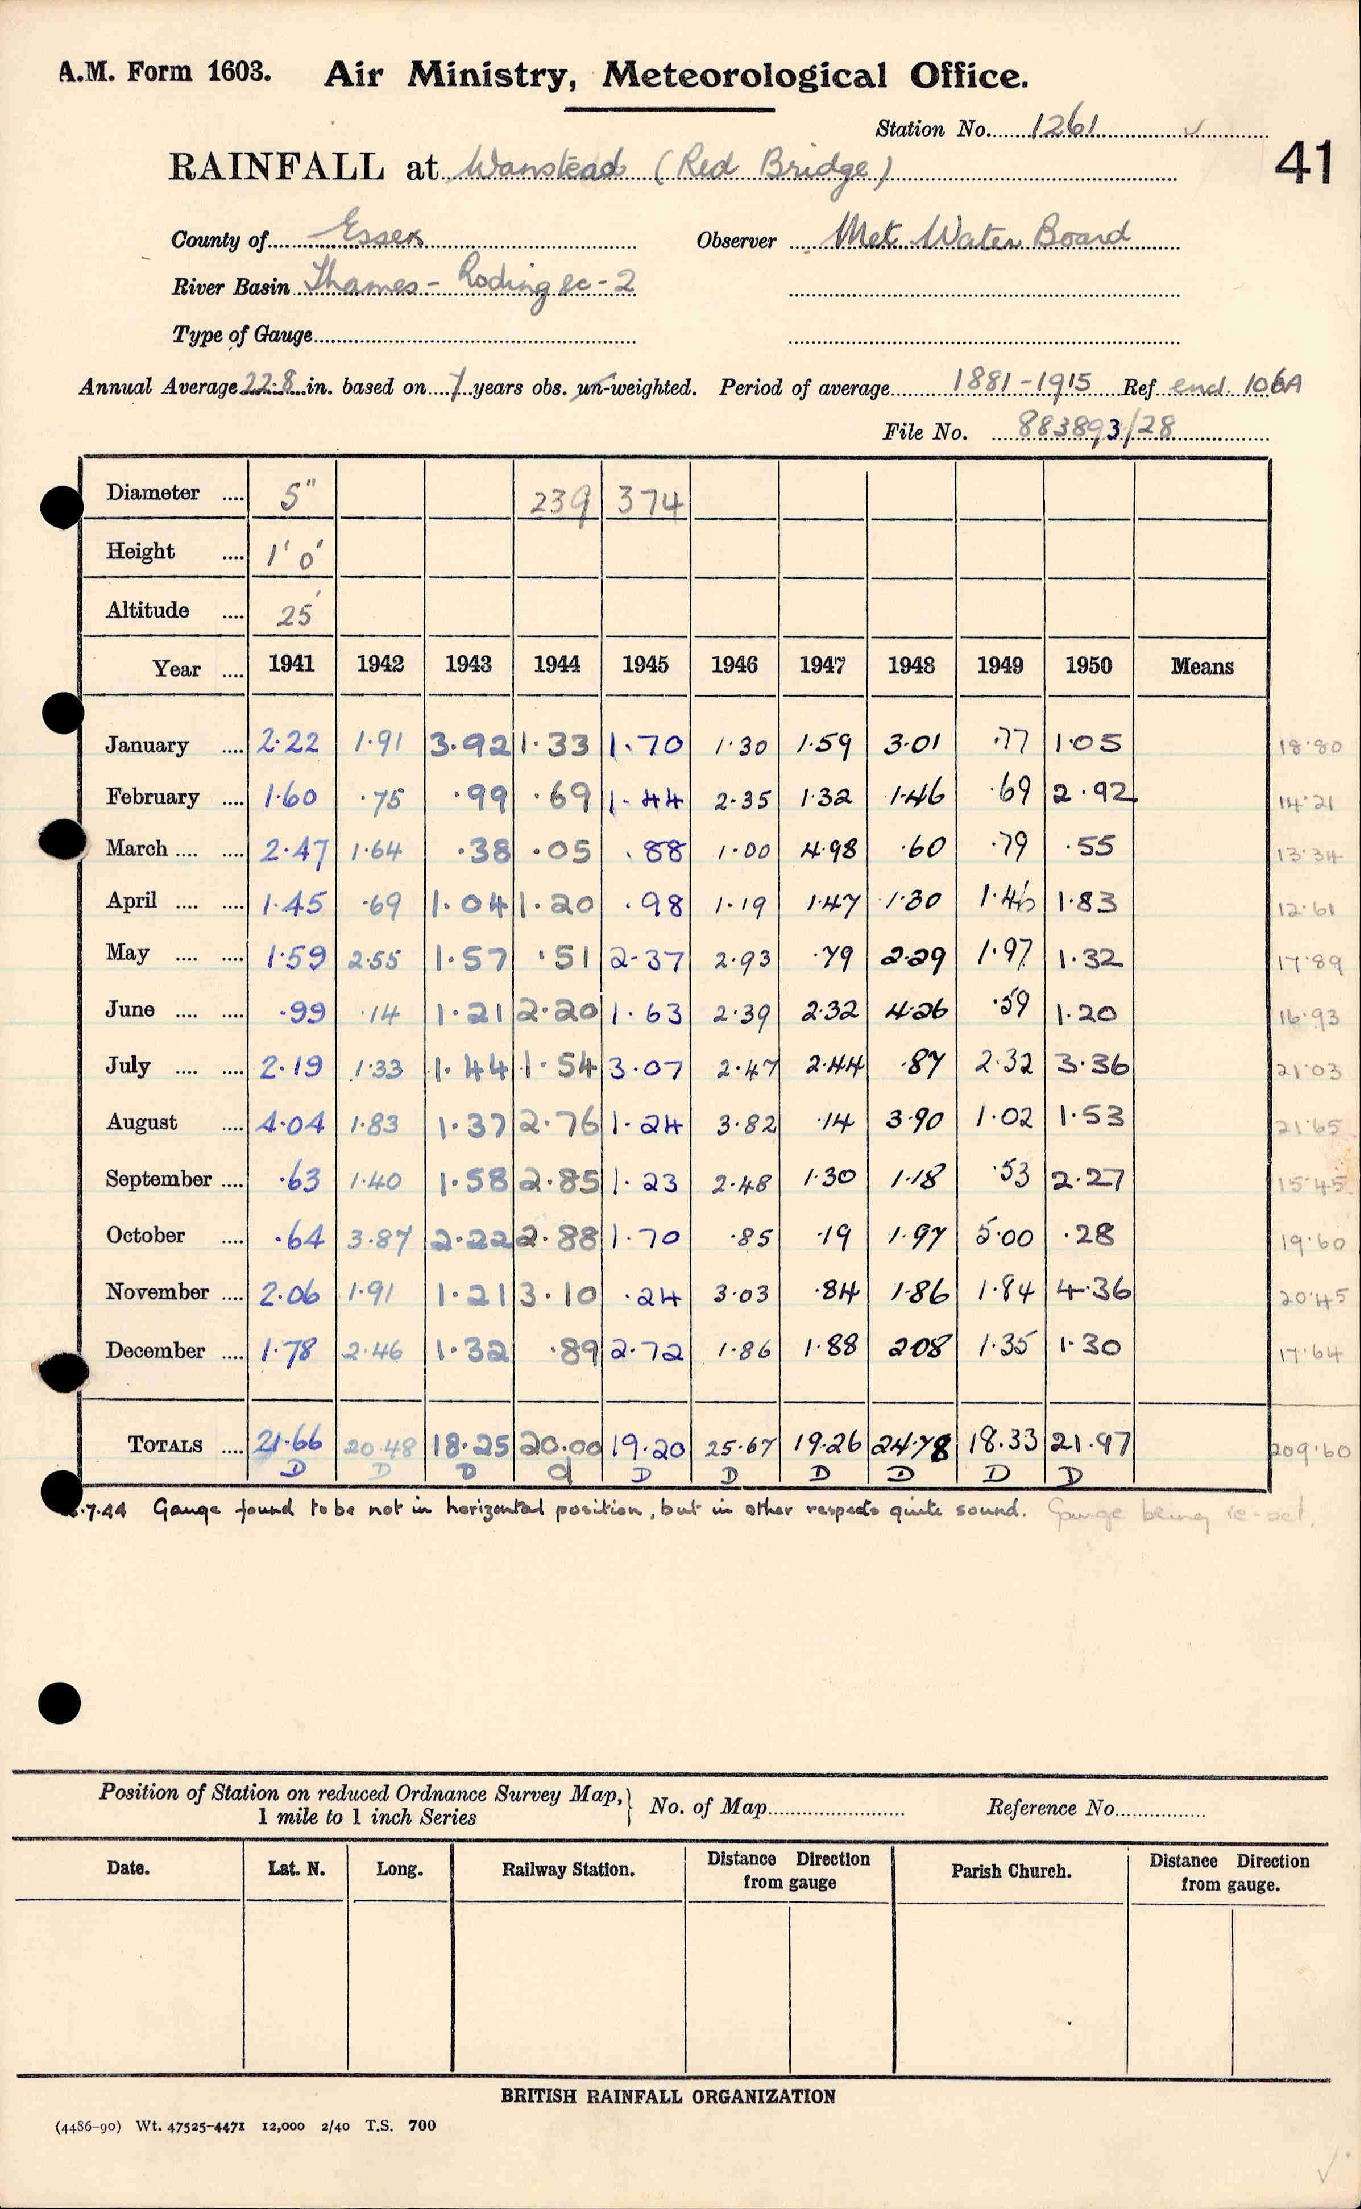 A.M. Form 1603. Air Ministry, Meteorological Office.
Station No. 1261
41
RAINFALL at Wanstead (Red Bridge)
County of Essex Observer Met. Water Board
River Basin Thames - Roding &c - 2
Type of Gauge
Annual Average 22.8 in. based on 7 years obs. un-weighted. Period of average 1881-1915 Ref end. 106A
File No. 883893/28
Diameter .... 5" 239 374
Height .... 1' 0"
Altitude .... 25'
Year .... 1941 1942 1943 1944 1945 1946 1947 1948 1949 1950 Means
January .... 2.22 1.91 3.92 1.33 1.70 1.30 1.59 3.01 .77 1.05 18.80
February .... 1.60 .75 .99 .69 1.44 2.35 1.32 1.46 .69 2.92 14.21
March .... .... 2.47 1.64 .38 .05 .88 1.00 4.98 .60 .79 .55 13.34
April .... .... 1.45 .69 1.04 1.20 .98 1.19 1.47 1.30 1.46 1.83 12.61
May .... .... 1.59 2.55 1.57 .51 2.37 2.93 .79 2.29 1.97 1.32 17.89
June .... .... .99 .14 1.21 2.20 1.63 2.39 2.32 4.26 .59 1.20 16.93
July .... .... 2.19 1.33 1.44 1.54 3.07 2.47 2.44 .87 2.32 3.36 21.03
August .... 4.04 1.83 1.37 2.76 1.24 3.82 .14 3.90 1.02 1.53 21.65
September .... .63 1.40 1.58 2.85 1.23 2.48 1.30 1.18 .53 2.27 15.45
October .... .64 3.87 2.22 2.88 1.70 .85 .19 1.97 5.00 .28 19.60
November .... 2.06 1.91 1.21 3.10 .24 3.03 .84 1.86 1.84 4.36 20.45
December .... 1.78 2.46 1.32 .89 2.72 1.86 1.88 2.08 1.35 1.30 17.64
TOTALS .... 21.66 20.48 18.25 20.00 19.20 25.67 19.26 24.78 18.33 21.97 209.60
D D D d D D D D D D
.7.44 Gauge found to be not in horizontal position, but in other respects quite sound. Gauge being re-set.
Position of Station on reduced Ordnance Survey Map, 1 mile to 1 inch Series } No. of Map Reference No.
Date. Lat. N. Long. Railway Station. Distance from gauge Direction Parish Church. Distance from gauge. Direction
BRITISH RAINFALL ORGANIZATION
(4486-90) Wt. 47525-4471 12,000 2/40 T.S. 700